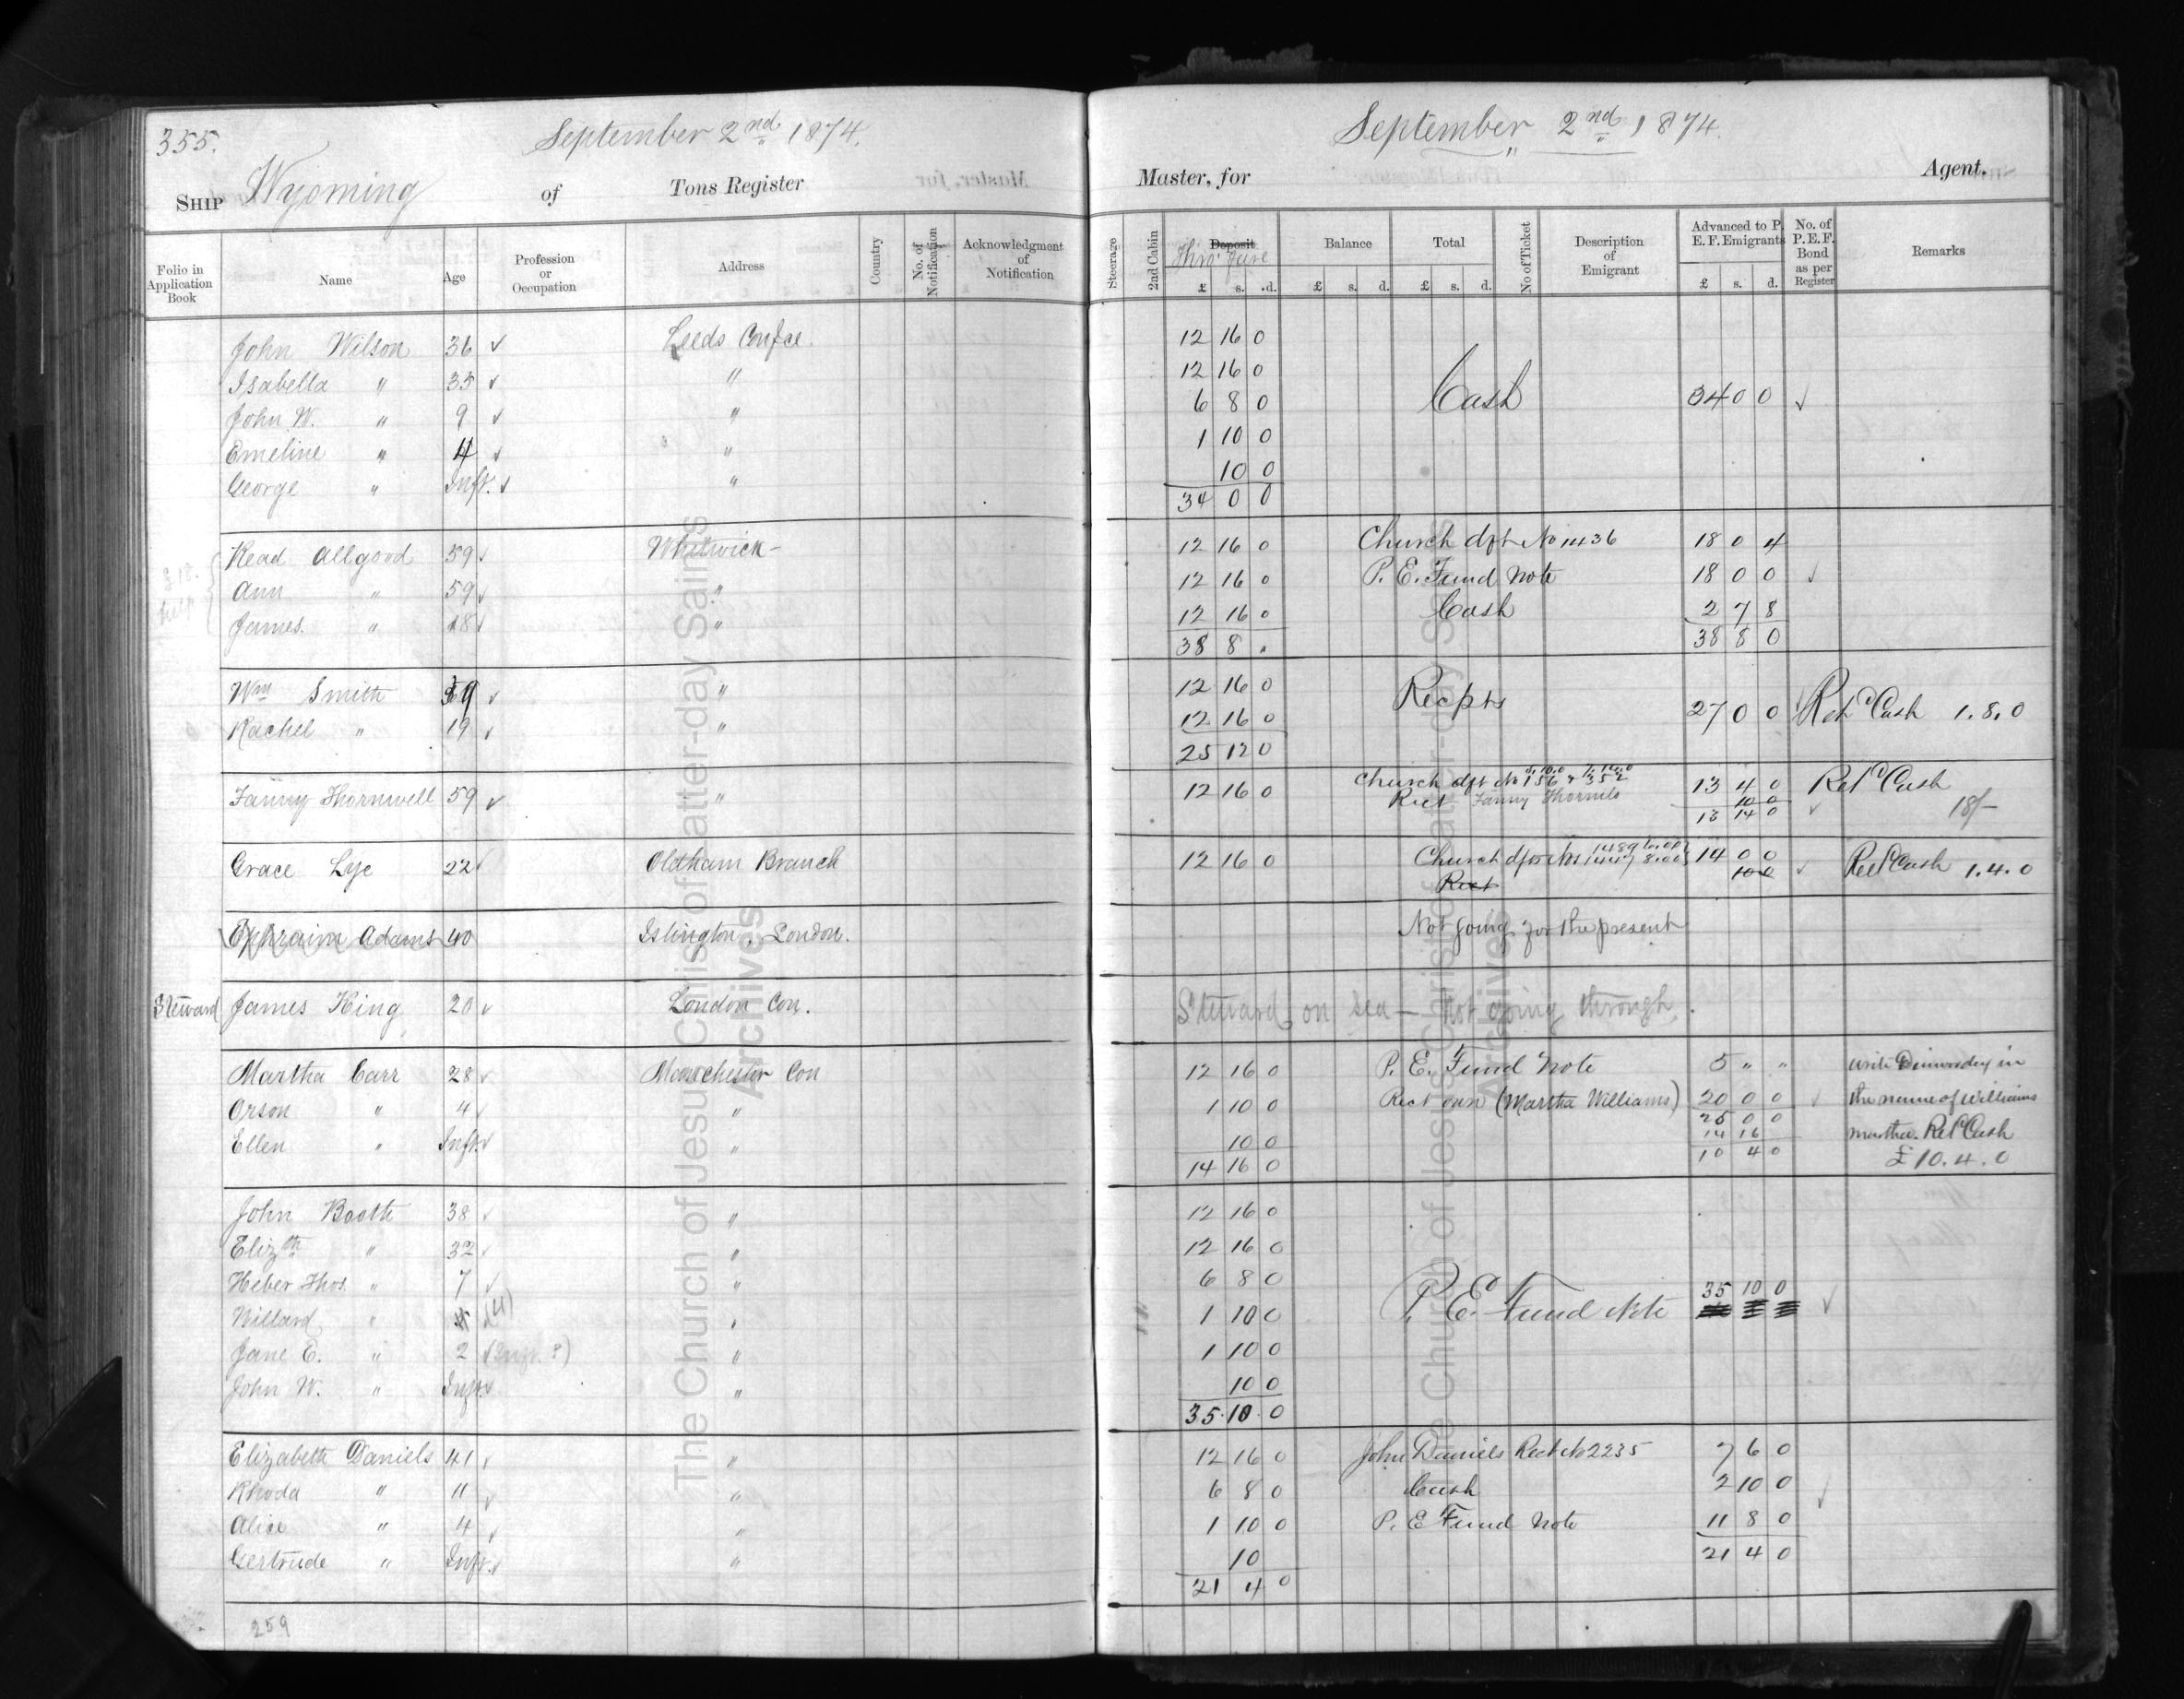 355.
September 2nd 1874.
Ship Wyoming of Tons Register
Folio in Application Book
Name
Age
Profession or Occupation
Address
Country
No. of Notification
Acknowledgment of Notification
John Wilson 36 ✓ Leeds Confce.
Isabella " 35 ✓ "
John W. " 9 ✓ "
Emeline " 4 ✓ "
George " Inft. ✓ "
£18. help
Read Allgood 59 ✓ Whitwick
Ann " 59 ✓ "
James " 18 ✓ "
Wm Smith 59 ✓ "
Rachel " 19 ✓ "
Fanny Thornwell 59 ✓ "
Grace Lye 22 ✓ Oldham Branch
Ephraim Adams 40 Islington, London.
Steward James King 20 ✓ London Con.
Martha Carr 28 ✓ Manchester Con
Orson " 4 ✓ "
Ellen " Inft. ✓ "
John Booth 38 ✓ "
Elizth " 32 ✓ "
Heber Thos. " 7 ✓ "
Willard " (4) "
Jane E. " 2 (Inft. ?) "
John W. " Inft ✓ "
Elizabeth Daniels 41 ✓ "
Rhoda " 11 ✓ "
Alice " 4 ✓ "
Gertrude " Inft. ✓ "
259
September 2nd 1874.
Master, for Agent.
Steerage
2nd Cabin
Deposit
Thro' Fare
£ s. d.
Balance
£ s. d.
Total
£ s. d.
No of Ticket
Description of Emigrant
Advanced to P. E. F. Emigrants
£ s. d.
No. of P. E. F. Bond as per Register
Remarks
12 16 0
12 16 0
6 8 0 Cash 34 0 0 ✓
1 10 0
10 0
34 0 0
12 16 0 Church dft No 1436 18 0 4
12 16 0 P. E. Fund Note 18 0 0 ✓
12 16 0 Cash 2 7 8
38 8 " 38 8 0
12 16 0 Recpts
12 16 0 27 0 0 ✓ Retd Cash 1.8.0
25 12 0
12 16 0 Church dft No 156 & 352 13 4 0 Retd Cash
Rect Fanny Thornils 10 0
13 14 0 ✓ 18/-
12 16 0 Church dfts Nos 14 0 0 ✓ Retd Cash 1.4.0
Rect 10 0
Not going for the present
Steward on sea — not going through.
12 16 0 P. E. Fund Note 5 " " write Dinwoodey in
1 10 0 Rect own (Martha Williams) 20 0 0 ✓ the name of Williams
25 0 0
10 0 14 16 Martha. Retd Cash
14 16 0 10 4 0 £10.4.0
12 16 0
12 16 0
6 8 0
1 10 0 P. E. Fund Note 35 10 0 ✓
1 10 0
10 0
35.10.0
12 16 0 John Daniels Rect No 2235 7 6 0
6 8 0 Cash 2 10 0 ✓
1 10 0 P. E Fund Note 11 8 0
10 21 4 0
21 4 0
The Church of Jesus Christ of Latter-day Saints
Archives
The Church of Jesus Christ of Latter-day Saints
Archives